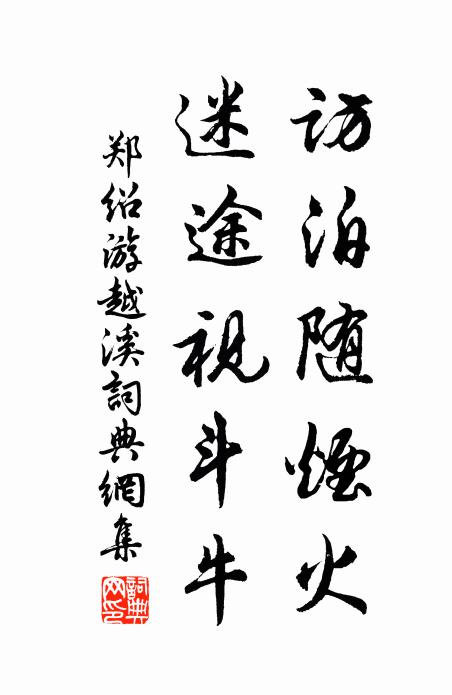 访泊随煙火
迷途視斗牛
郑绍游越溪詞典網集
詞典网印